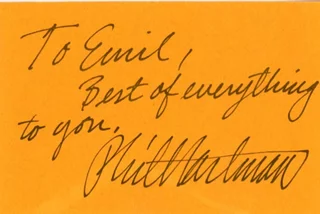 To Emil,
Best of everything
to you.
Phil Hartman